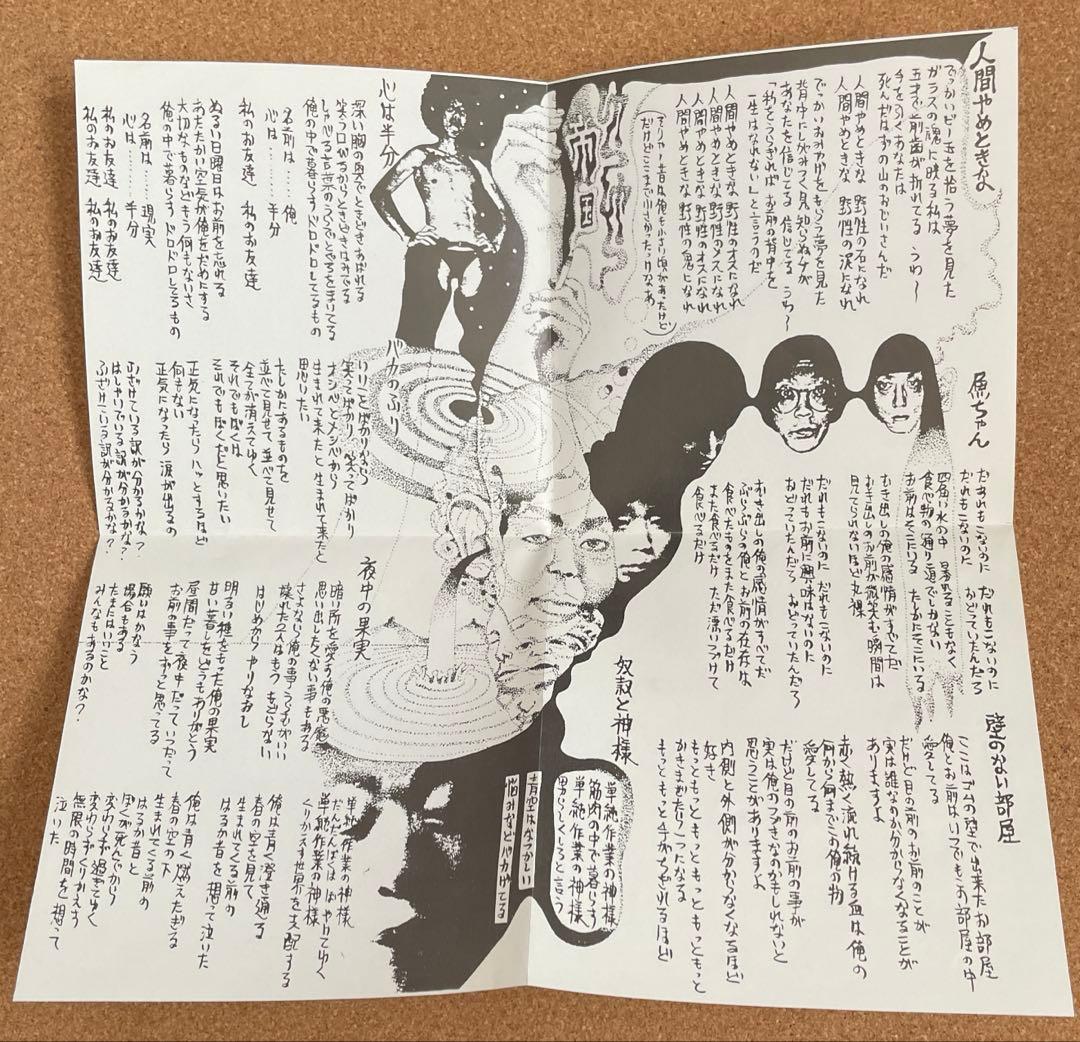 人間やめときな
でっかいビー玉を拾う夢を見た
ガラスの魂に映る私は
五才で前歯が折れてる うわ〜
手をひくあなたは
死んだはずの山のおじいさんだ
人間やめときな 野性の石になれ
人間やめときな 野性の涙になれ
でっかいおみやげをもらう夢を見た
背中にしがみつく見知らぬ子が
あなたを信じてる 信じてる うわ〜
「私をうらぎれば お前の背中を
一生はなれない」と言うのだ
人間やめときな 野性のオスになれ
人間やめときな 野性のメスになれ
人間やめときな 野性のオスになれ
人間やめときな 野性の鬼になれ
だけどこんなに小さかったけなあ
魚ちゃん
だあれもこないのに だれもこないのに
だれもこないのに おどっていたんだろ
四角い水の中 暴れることもなく
食べ物の通り道でしかない
お前はそこにいる たしかにそこにいる
むき出しの俺の感情がすべてだ
むき出しのお前が微笑む瞬間は
見てられないほど丸裸
だれもこないのに だれもこないのに
だれもお前に興味はないのに
おどっていたんだろ おどっていたんだろ
むき出しの俺の感情がすべてだ
ぶらぶらの俺とお前の存在は
食べたものをまた食べるだけ
また食べるだけ ただ漂いつづけて
食べるだけ
壁のない部屋
ここはゴムの壁で出来たお部屋
俺とお前はいつでもこの部屋の中
愛してる
だけど目の前のお前のことが
実は誰なのか分からなくなることが
ありますよ
赤く熱く流れ続ける血は俺の
何から何までこの俺の物
愛してる
だけど目の前のお前の事が
実は俺のつづきなのかもしれないと
思うことがありますよ
内側と外側が分からなくなるほど
好き
もっともっともっともっともっともっと
かきまぜたり一つになる
もっともっと手がちぎれるほど
奴隷と神様
単純作業の神様
筋肉の中で暮らす
単純作業の神様
男らしくしろと言う
青空はなつかしい
悩みなどバカげてる
単純作業の神様
だんだんぼくは はやけてゆく
単純作業の神様
くりかえす世界を支配する
俺は青く澄き通る
春の空を見て
生まれてくる前の
はるか昔を想って泣いた
俺は青く燃えたぎる
春の空の下
生まれてくる前の
はるか昔と
ぼくが死んでから
変わらず過ぎてゆく
変わらずくりかえす
無限の時間を想って
泣いた
心は半分
深い胸の奥でときどきあばれる
笑う口があるからときどきはみでる
しゃべる言葉のうらでとぐろをまいてる
俺の中で暮らす ドロドロしてるもの
名前は……俺
心は……半分
私のお友達 私のお友達
ぬるい日曜日はお前を忘れる
あたたかい空気が俺をだめにする
大切なものなどもう何もないさ
俺の中で暮らす ドロドロしてるもの
名前は……現実
心は……半分
私のお友達 私のお友達
私のお友達 私のお友達
バカのふり
いいことばかりだから
笑ってばかり 笑ってばかり
オシベとメシベから
生まれて来たと 生まれて来たと
思いたい
たしかにあるものを
並べて見せて 並べて見せて
全てが消えてゆく
それでもぼくは
それでもぼくだと思いたい
正気になったら ハッとするほど
何もない
正気になったら 涙が出るの
ふざけている訳が分かるかな?
はしゃいでいる訳が分かるかな?
ふざけている訳が分かるかな?
夜中の果実
暗い所を愛す俺の悪魔
思い出したくない事もあるさ
さよなら俺の事うらむがいい
壊れた二人はもう もどらない
はじめから やりなおし
明るい種をもった俺の果実
甘い暮しをどうもありがとう
昼間だって夜中だっていつだって
お前の事をずっと思ってる
願いはかなう
場合もある
たまにはいいこと
みんなもあるのかな?